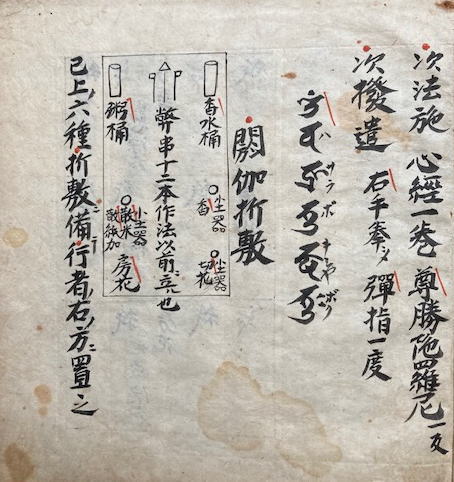 次法施 心經一巻 尊勝陁羅尼一反
次撥遣 右手拳〆 彈指一度
閼伽折敷
香水桶 土器 香 土器 切花
弊串十二本作法以前ニ立也
粥桶 土器 散米 散紙加 房花
已上六種折敷ニ備ヘ行者ノ右ノ方ニ置之